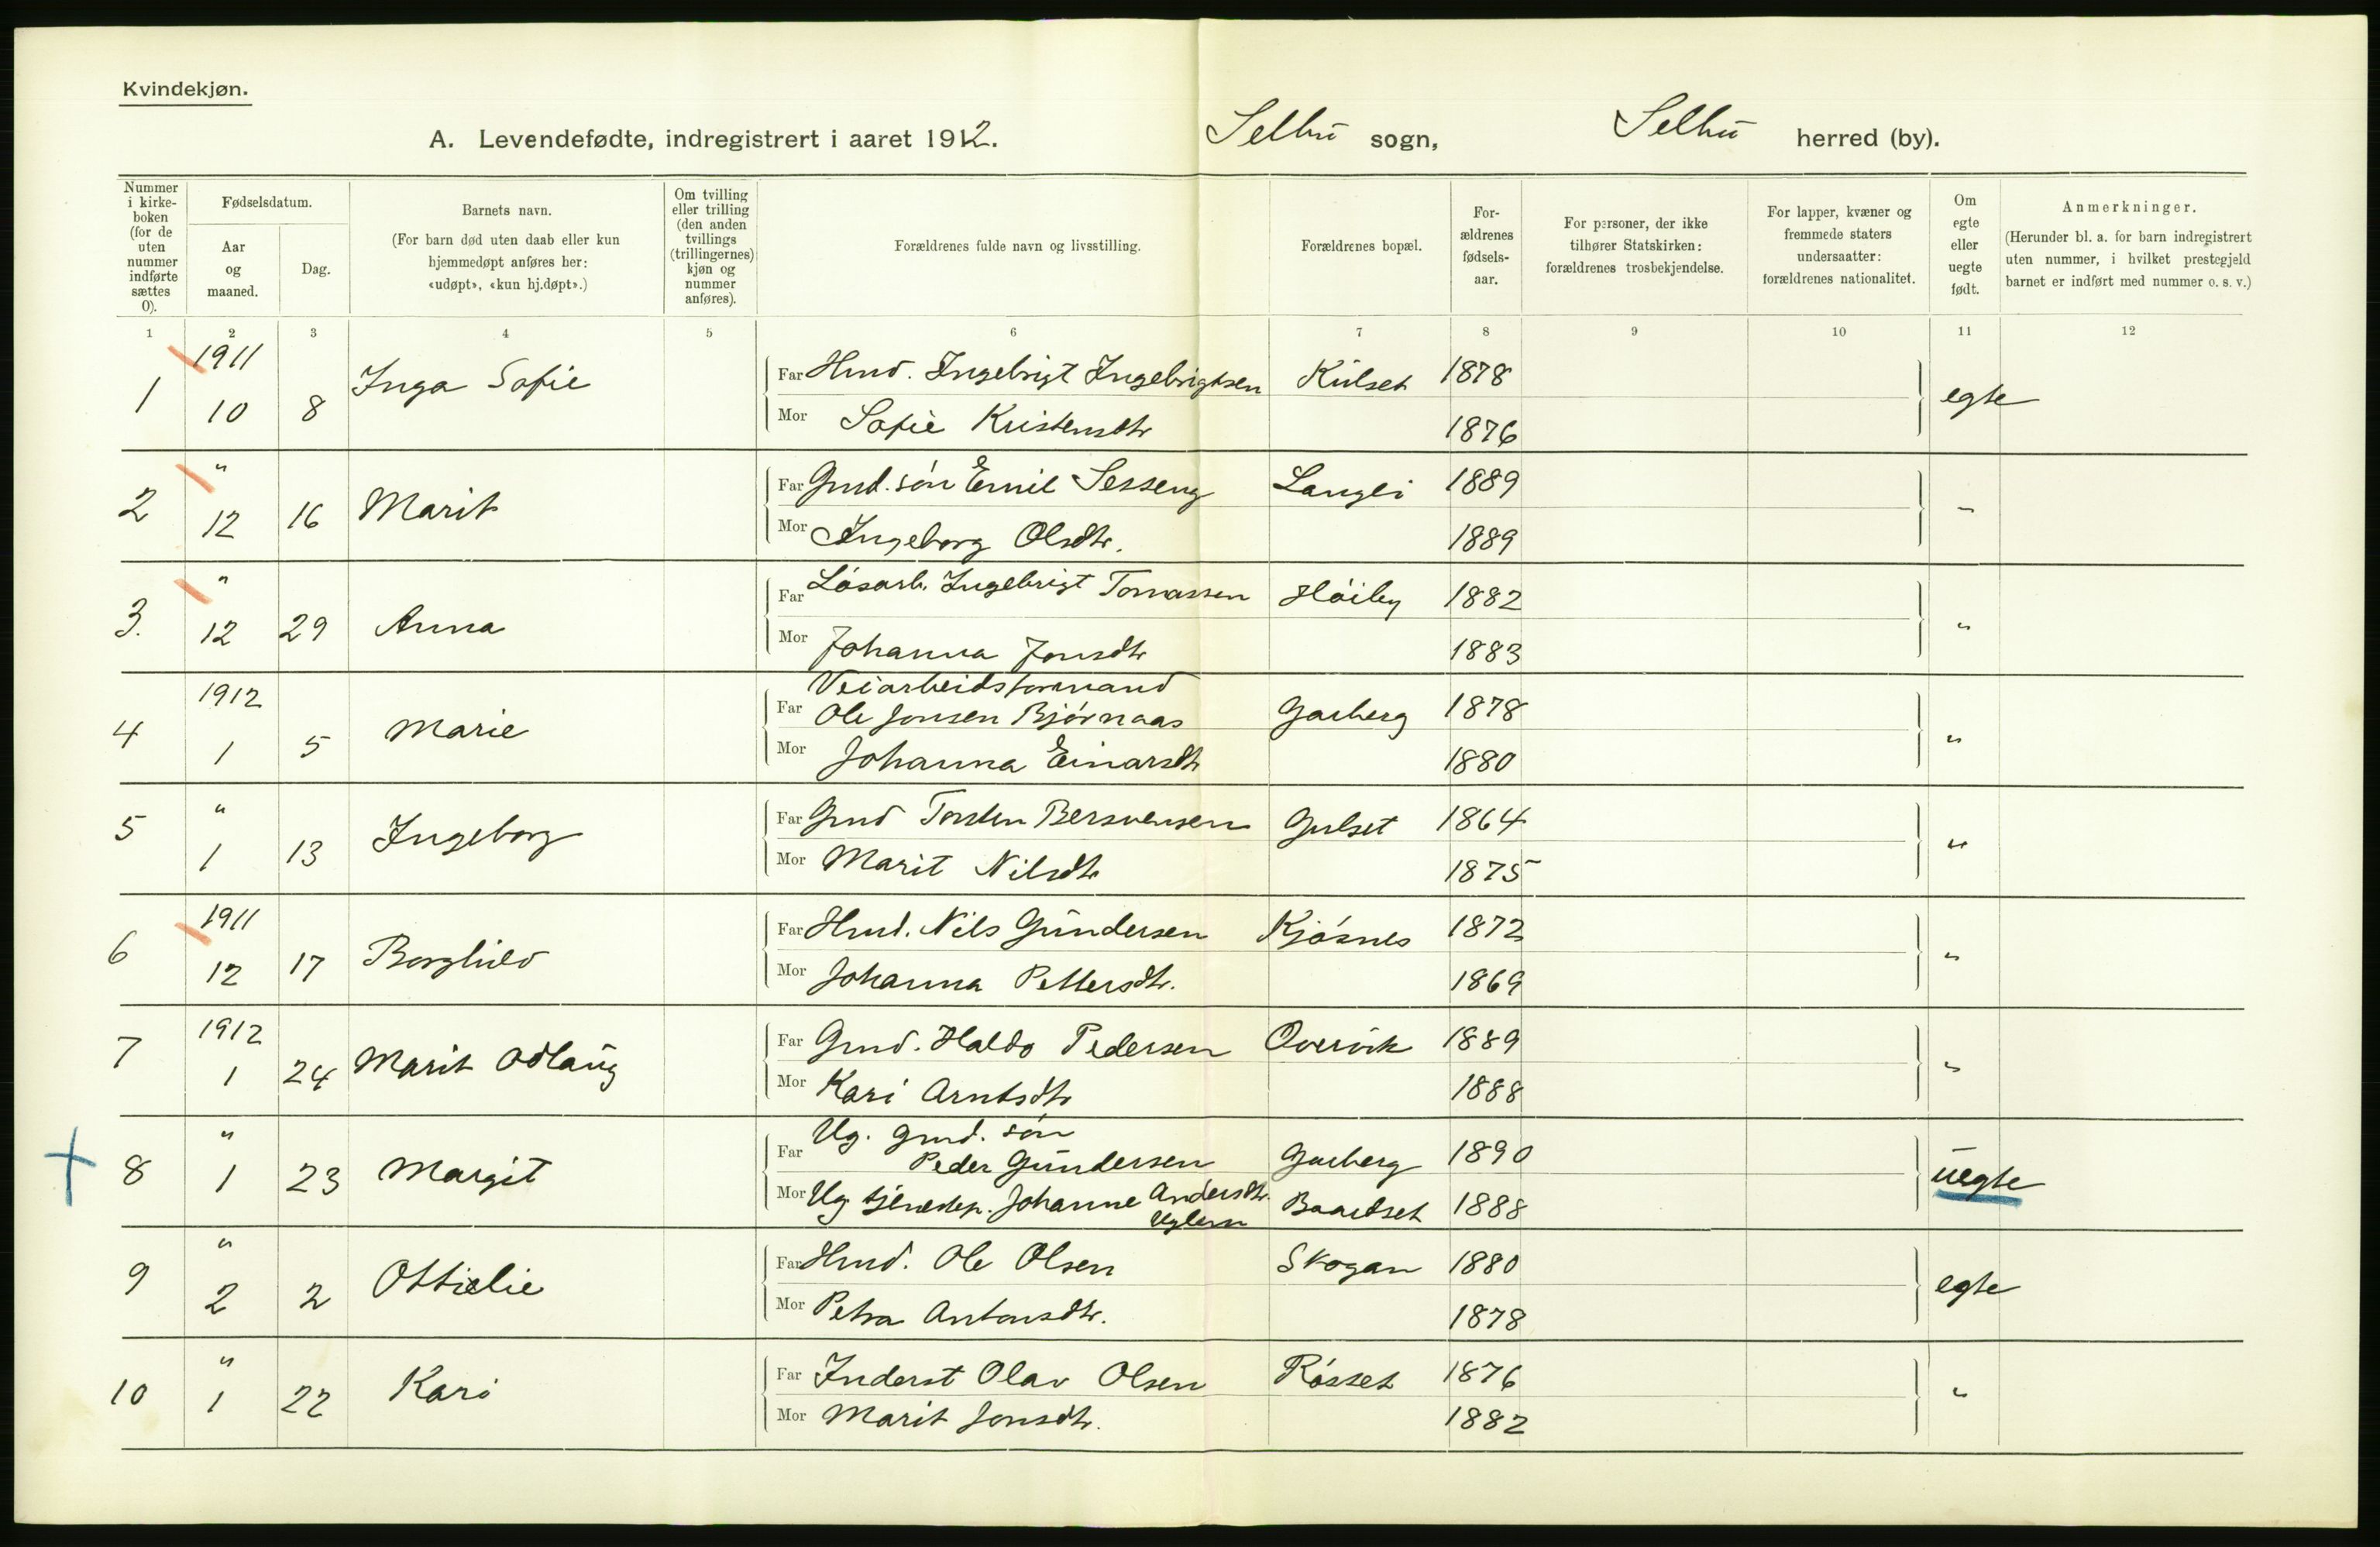 Kvindekjøn.
A. Levendefødte, indregistrert i aaret 1912. Selbu sogn, Selbu herred (by).
Nummer i kirke-boken (for de uten nummer indførte sættes 0).
Fødselsdatum.
Aar og maaned.
Dag.
Barnets navn.
(For barn død uten daab eller kun hjemmedøpt anføres her: «udøpt», «kun hj.døpt».)
Om tvilling eller trilling (den anden tvillings (trillingernes) kjøn og nummer anføres).
Forældrenes fulde navn og livsstilling.
Forældrenes bopæl.
For-ældrenes fødsels-aar.
For personer, der ikke tilhører Statskirken: forældrenes trosbekjendelse.
For lapper, kvæner og fremmede staters undersaatter: forældrenes nationalitet.
Om egte eller uegte født.
Anmerkninger.
(Herunder bl. a. for barn indregistrert uten nummer, i hvilket prestegjeld barnet er indført med nummer o. s. v.)
1 2 3 4 5 6 7 8 9 10 11 12
1 1911 10 8 Inga Sofie Far Hmd. Ingebrigt Ingebrigtsen Kulset 1878 egte
Mor Sofie Kristensdtr 1876
2 " 12 16 Marit Far Gmd. søn Emil Sesseng Langli 1889 "
Mor Ingeborg Olsdtr. 1889
3. " 12 29 Anna Far Løsarb. Ingebrigt Tomassen Høiby 1882 "
Mor Johanna Jonsdtr 1883
4 1912 1 5 Marie Far Veiarbeidsformand
Ole Jonsen Bjørnaas Garberg 1878 "
Mor Johanna Einarsdtr 1880
5 " 1 13 Ingeborg Far Gmd Torsten Bersvensen Gulset 1864 "
Mor Marit Nilsdtr 1875
6 1911 12 17 Borghild Far Hmd. Nils Gundersen Kjøsnes 1872 "
Mor Johanna Pettersdtr. 1869
7 1912 1 24 Marit Odlaug Far Gmd. Haldo Pedersen Overvik 1889 "
Mor Kari Arntsdtr 1888
8 " 1 23 Margit Far Ug. gmd. søn
Peder Gundersen Garberg 1890 uegte
Mor Ug tjenestep. Johanne Andersdtr. Baardset 1888
Uglem
9 " 2 2 Ottielie Far Hmd. Ole Olsen Skogan 1880 egte
Mor Petra Antonsdtr. 1878
10 " 1 22 Kari Far Inderst Olav Olsen Røsset 1876 "
Mor Marit Jonsdtr. 1882